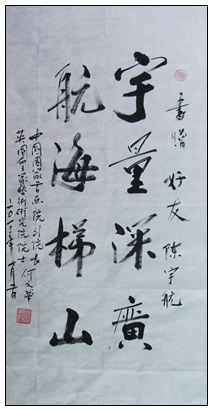 書贈 好友 陈宇航
宇量深廣
航海梯山
中國國家书画院副院长 何文華
英国皇家藝術研究院院士
二〇一三年